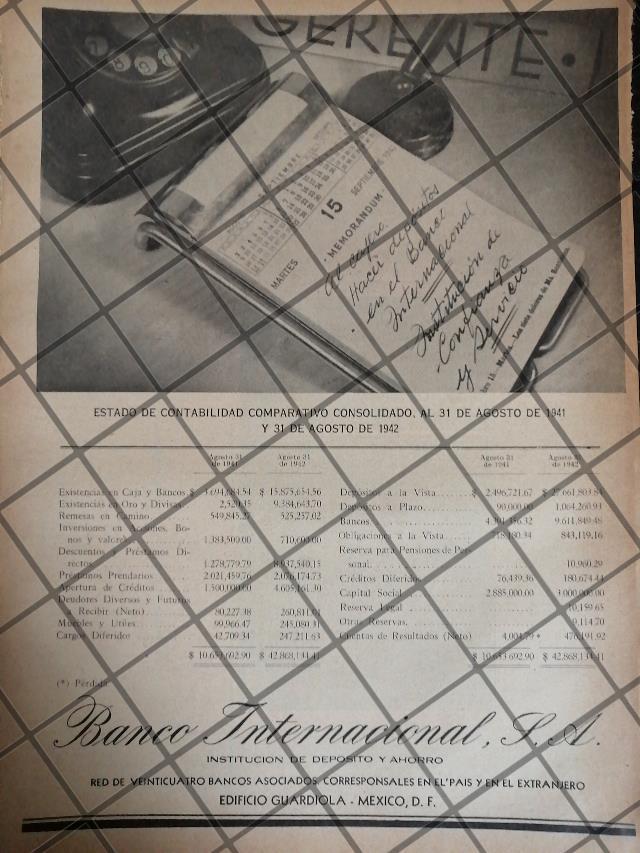 GERENTE.
SEPTIEMBRE
15
MARTES
-MEMORANDUM-
al cajero
Hacer depósitos
en el Banco
Internacional
Institución de
Confianza
y Servicio
ESTADO DE CONTABILIDAD COMPARATIVO CONSOLIDADO, AL 31 DE AGOSTO DE 1941
Y 31 DE AGOSTO DE 1942
Agosto 31 de 1941 Agosto 31 de 1942
Existencias en Caja y Bancos $ $ 15.875,654.56
Existencias en Oro y Divisas 2,520.35 9.384,643.70
Remesas en Camino 549,845.27 525,257.02
Inversiones en Acciones, Bo-
nos y valores 1.383,500.00 710,600.00
Descuentos y Préstamos Di-
rectos 1.278,779.79 8.937,540.15
Préstamos Prendarios 2.021,459.76 2.076,174.73
Apertura de Créditos 1.500,000.00 4.605,161.30
Deudores Diversos y Futuros
a Recibir (Neto) 80,227.38 260,811.01
Muebles y Utiles 99,966.47 245,080.31
Cargos Diferidos 42,709.34 247,211.63
$ 10.653,692.90 $ 42.868,134.41
(*) Pérdida
Agosto 31 de 1941 Agosto 31 de 1942
Depósitos a la Vista $ 2.496,721.67 $ 27.661,803.84
Depósitos a Plazo 90,000.00 1.064,260.93
Bancos 4.391,356.32 9.611,849.48
Obligaciones a la Vista 718,180.34 843,119.16
Reserva para Pensiones de Per-
sonal 10,960.29
Créditos Diferidos 76,439.36 180,674.44
Capital Social 2.885,000.00 3.000,000.00
Reserva Legal 10,159.65
Otras Reservas 9,114.70
Cuentas de Resultados (Neto) * 476,191.92
$ 10.653,692.90 $ 42.868,134.41
Banco Internacional, S.A.
INSTITUCION DE DEPOSITO Y AHORRO
RED DE VEINTICUATRO BANCOS ASOCIADOS. CORRESPONSALES EN EL PAIS Y EN EL EXTRANJERO
EDIFICIO GUARDIOLA - MEXICO, D. F.